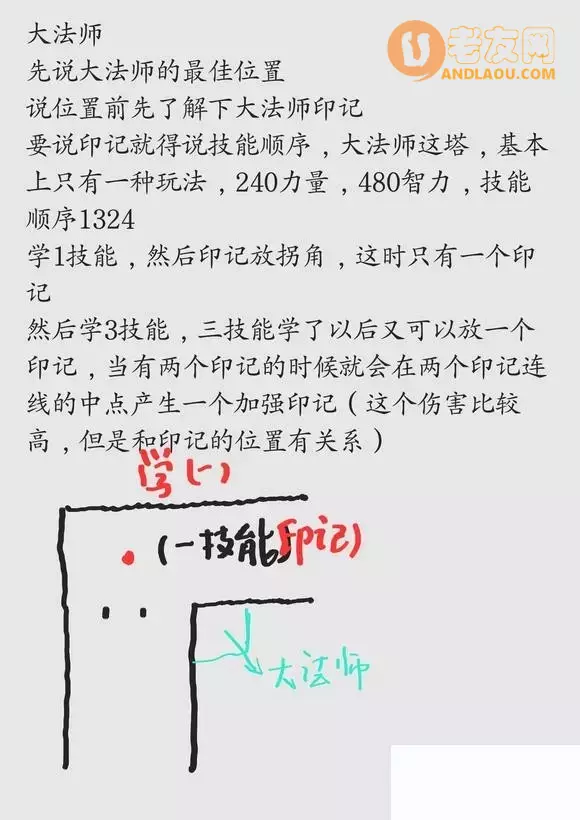 大法师
老友网
ANDLAOU.COM
先说大法师的最佳位置
说位置前先了解下大法师印记
要说印记就得说技能顺序，大法师这塔，基本
上只有一种玩法，240力量，480智力，技能
顺序1324
学1技能，然后印记放拐角，这时只有一个印
记
然后学3技能，三技能学了以后又可以放一个
印记，当有两个印记的时候就会在两个印记连
线的中点产生一个加强印记（这个伤害比较
高，但是和印记的位置有关系）
学(一)
(一技能印记)
大法师